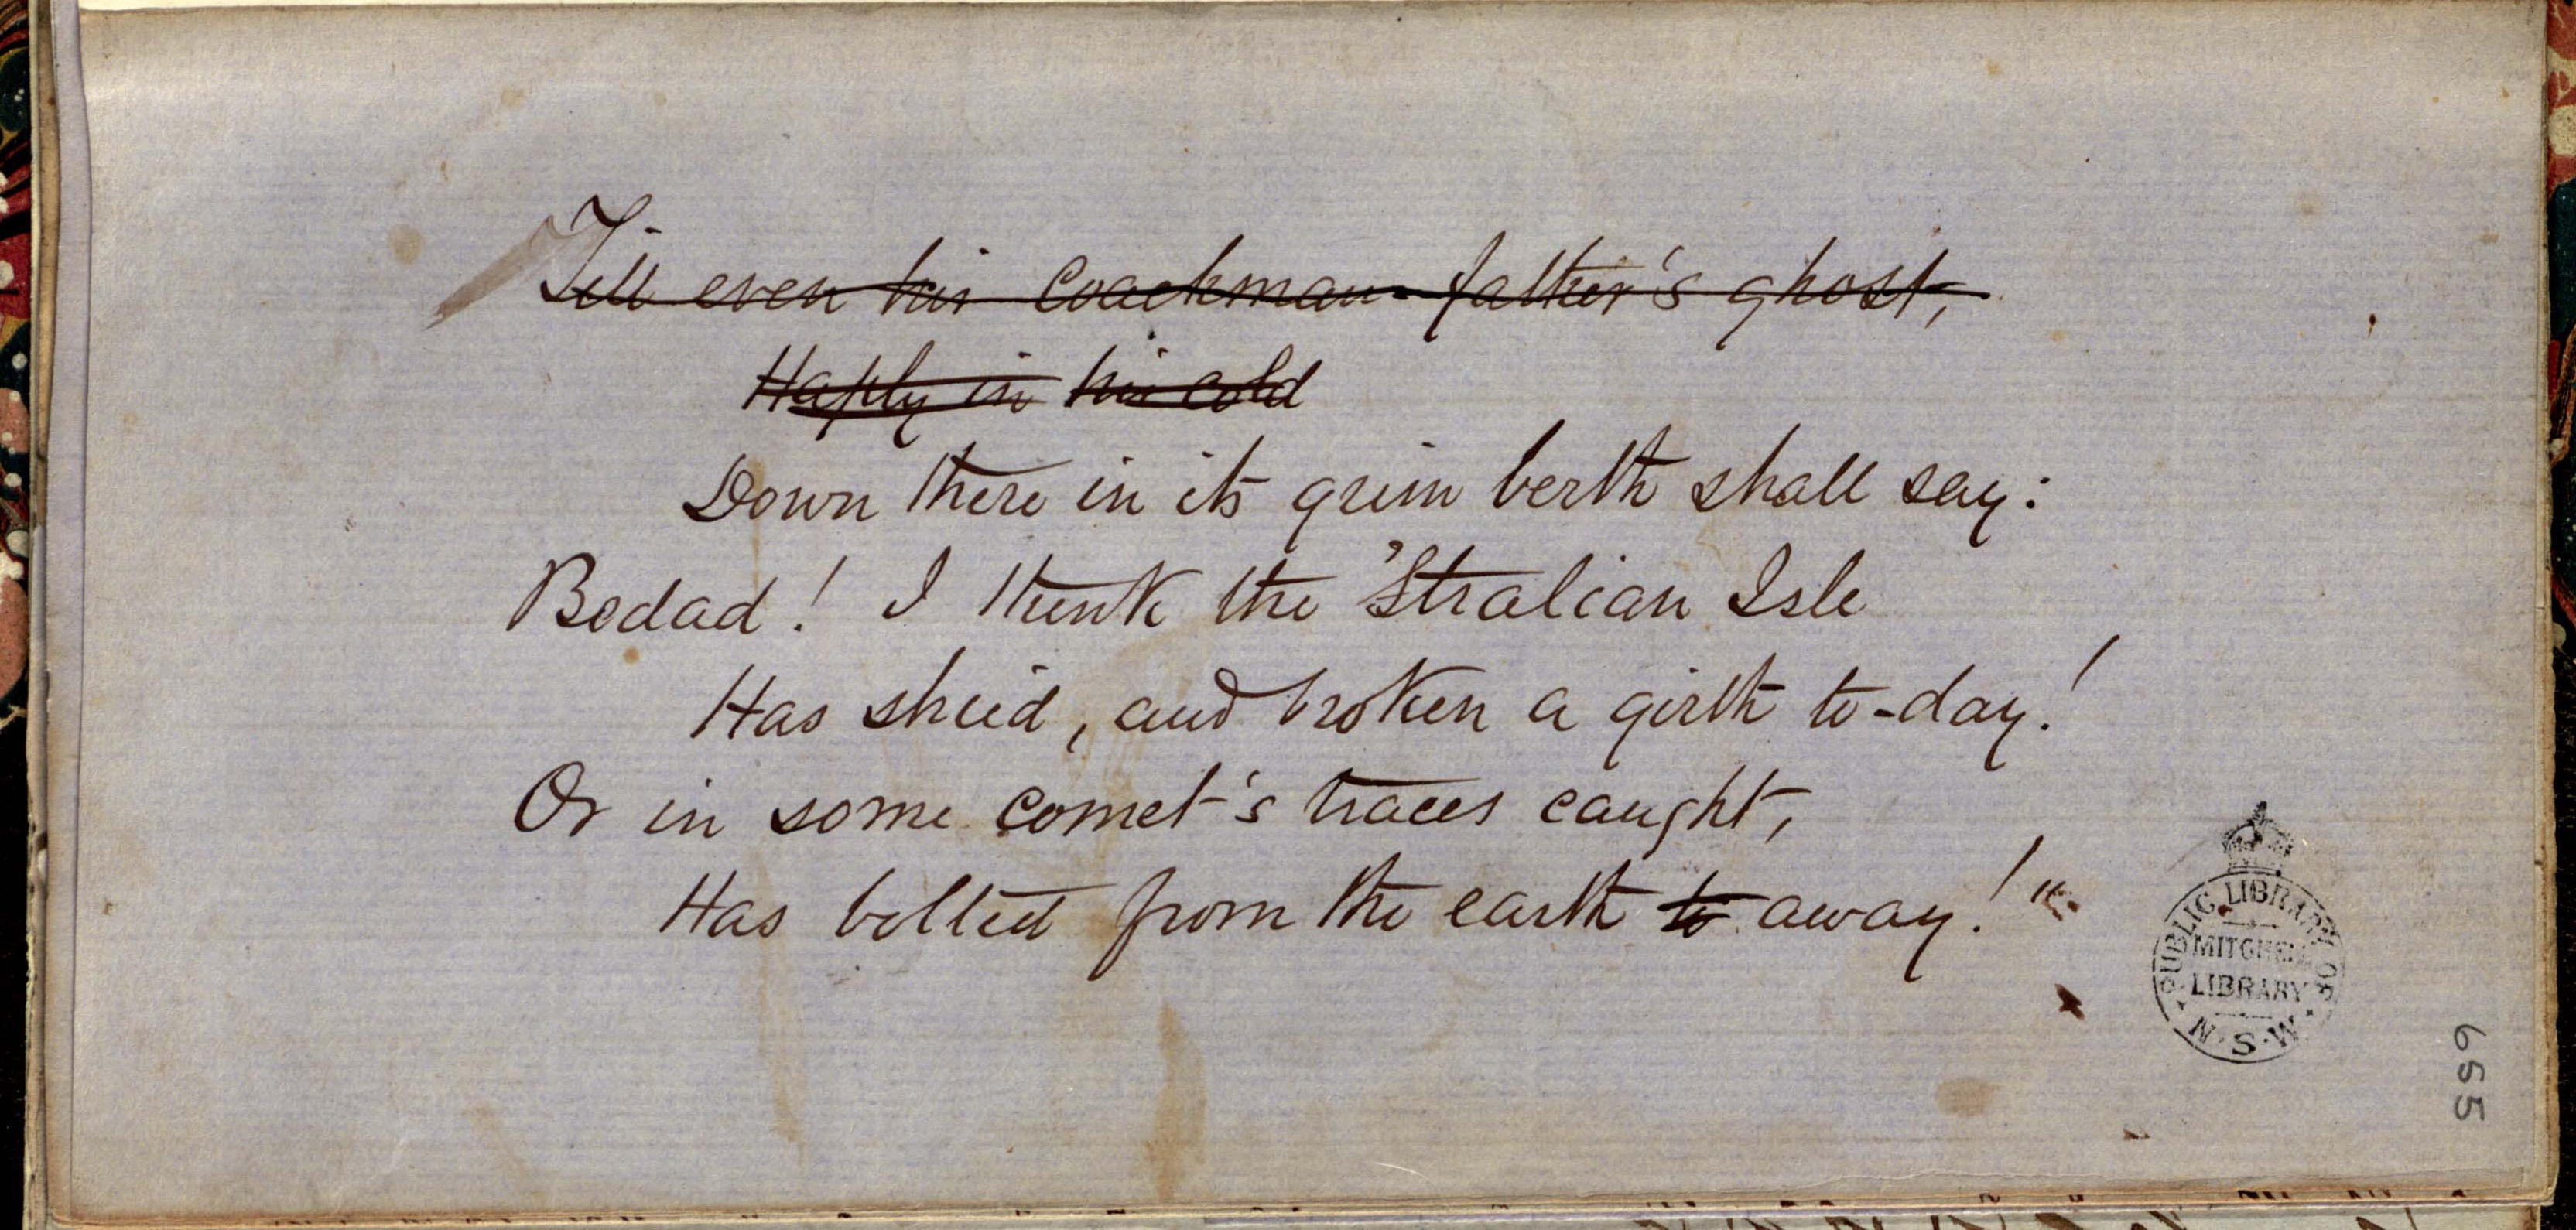 Till even his coachman-father's ghost,
Haply in his cold
Down there in its grim berth shall say:
Bedad! I think the 'Stralian Isle
Has shied, and broken a girth to-day!
Or in some comet's traces caught,
Has bolted from the earth to away!"
PUBLIC LIBRARY OF
MITCHELL
LIBRARY
N.S.W.
655